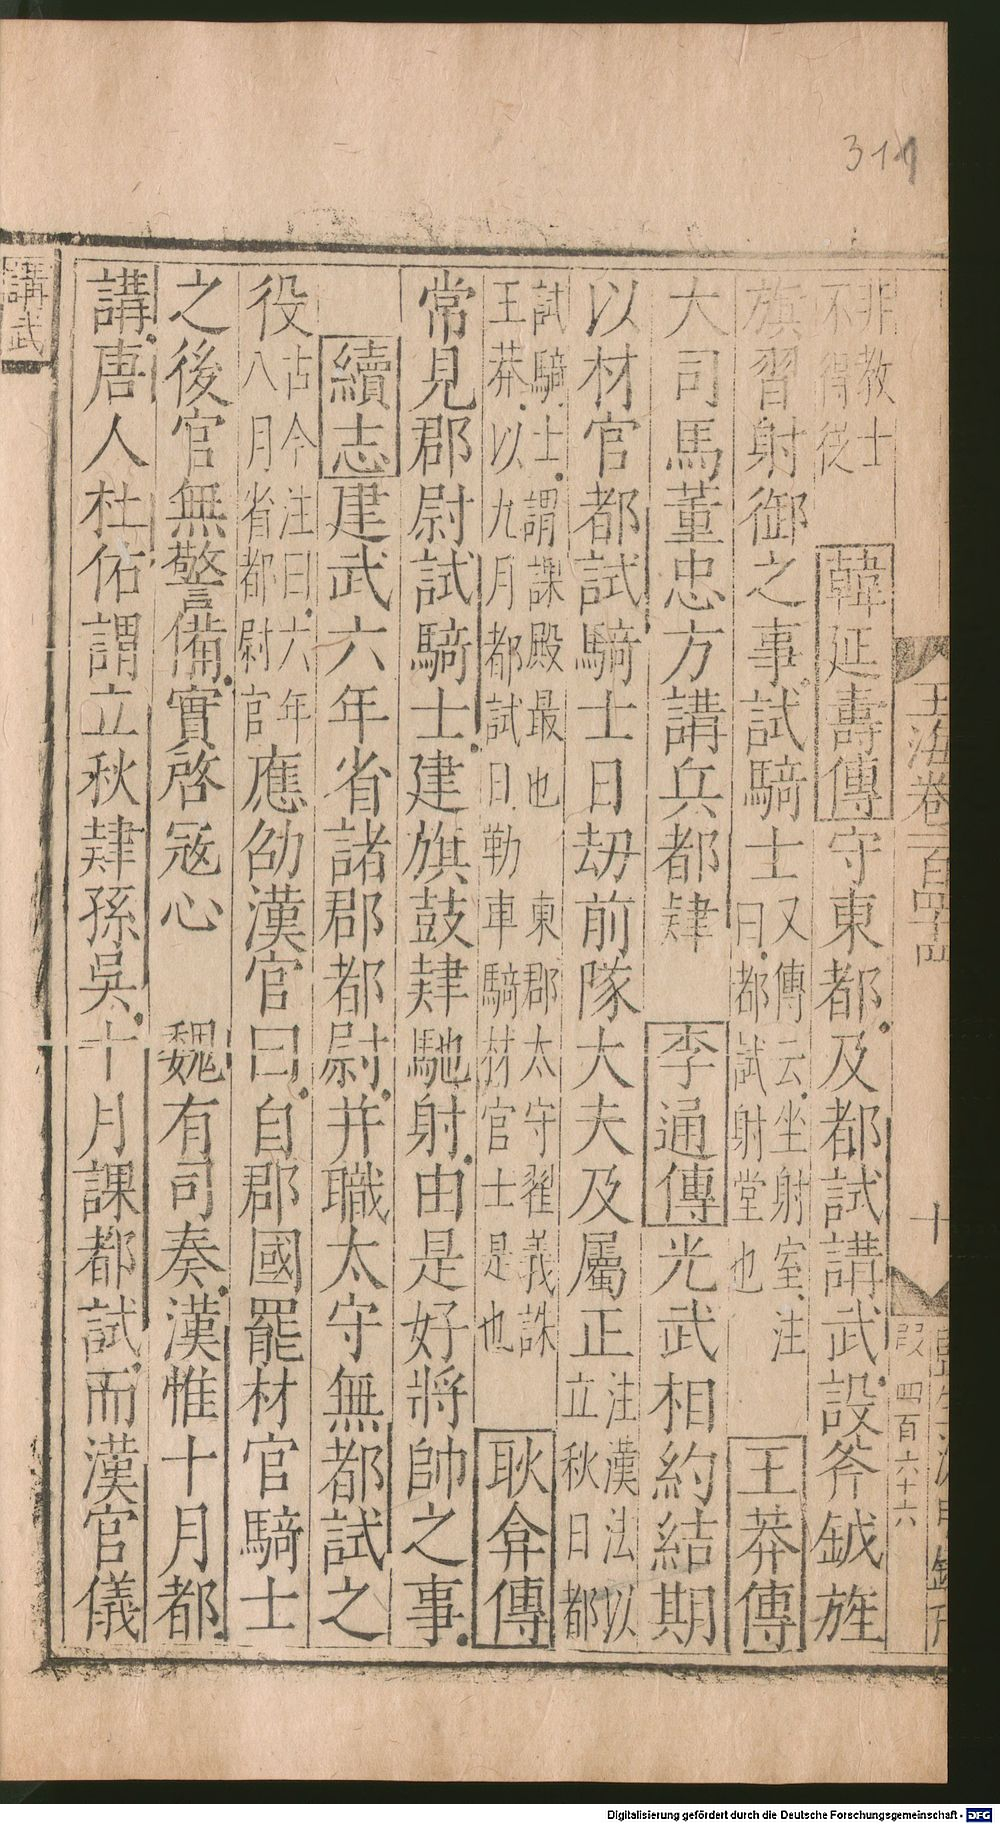 311
非教士
不得從
韓延壽傳守東都及都試講武設斧鉞旌
旗習射御之事試騎士又傳云坐射室注
曰都試射堂也
王莽傳
大司馬董忠方講兵都肄 李通傳光武相約結期
以材官都試騎士日劫前隊大夫及屬正注漢法以
立秋日都
試騎士謂課殿最也 東郡太守翟義誅
王莽以九月都試日勒車騎材官士是也
耿弇傳
常見郡尉試騎士建旗鼓肄馳射由是好將帥之事
續志建武六年省諸郡都尉并職太守無都試之
役古今注曰六年
八月省都尉官
應劭漢官曰自郡國罷材官騎士
之後官無警備實啓寇心 魏有司奏漢惟十月都
講唐人杜佑謂立秋肄孫吳十月課都試而漢官儀
講武
玉海卷一百四十四
十
四百六十六
Digitalisierung gefördert durch die Deutsche Forschungsgemeinschaft - DFG